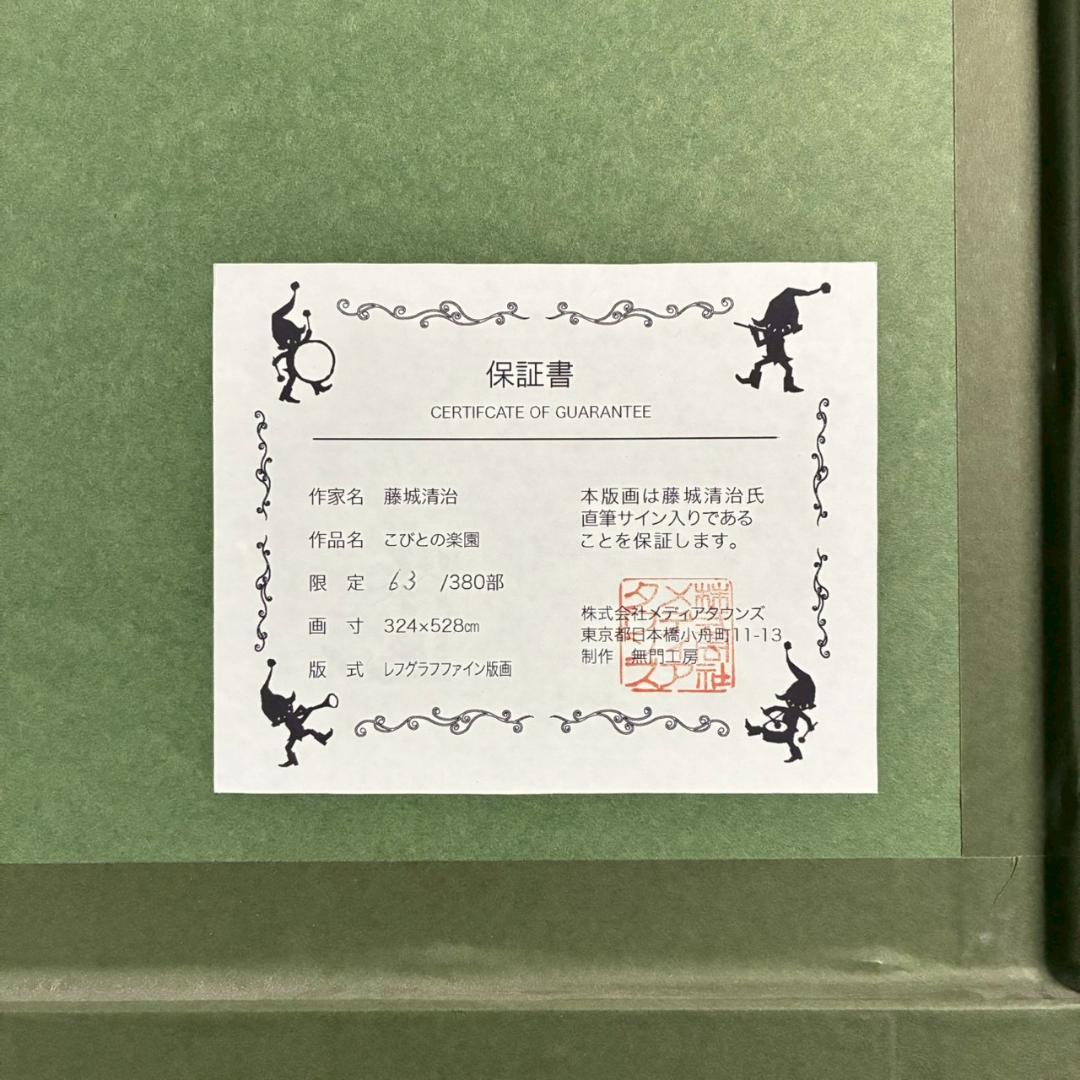 保証書
CERTIFCATE OF GUARANTEE
作家名 藤城清治
作品名 こびとの楽園
限 定 63 /380部
画 寸 324×528㎝
版 式 レフグラフファイン版画
本版画は藤城清治氏
直筆サイン入りである
ことを保証します。
株式会社メディアタウンズ
東京都日本橋小舟町11-13
制作 無門工房
株式会社
メディア
タウンズ